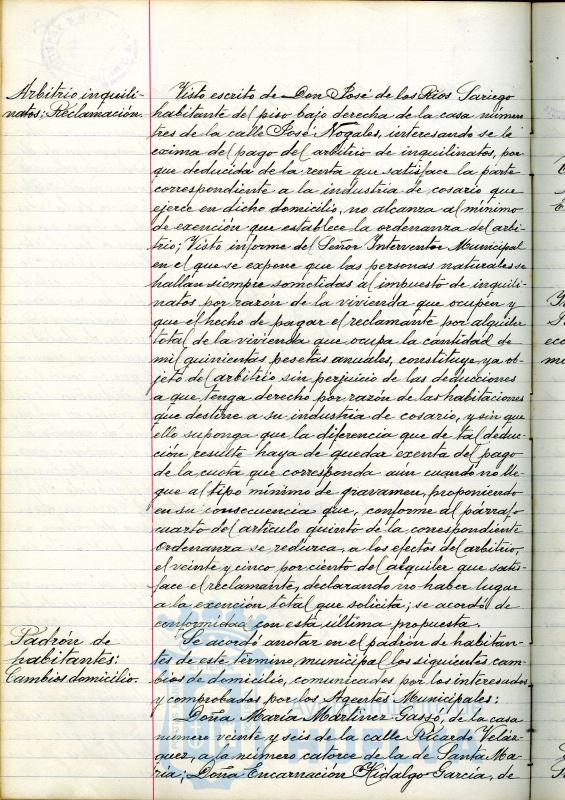 Arbitrio inquili-
natos; Reclamación.
Visto escrito de Don José de los Ríos Sariego
habitante del piso bajo derecha de la casa número
tres de la calle José Nogales, interesando se le
exima del pago del arbitrio de inquilinatos, por
que deducida de la renta que satisface la parte
correspondiente a la industria de cosario que
ejerce en dicho domicilio, no alcanza al mínimo
de exención que establece la ordenanza del arbi-
trio; Visto informe del Señor Interventor Municipal
en el que se expone que las personas naturales se
hallan siempre sometidas al impuesto de inquili-
natos por razón de la vivienda que ocupen y
que el hecho de pagar el reclamante por alquiler
total de la vivienda que ocupa la cantidad de
mil quinientas pesetas anuales, constituye ya ob-
jeto del arbitrio sin perjuicio de las deducciones
a que tenga derecho por razón de las habitaciones
que destine a su industria de cosario, y sin que
ello suponga que la diferencia que de tal deduc-
ción resulte haya de quedar exenta del pago
de la cuota que corresponda aún cuando no lle-
gue al tipo mínimo de gravamen, proponiendo
en su consecuencia que, conforme al párrafo
cuarto del artículo quinto de la correspondiente
Ordenanza se reduzca, a los efectos del arbitrio,
el veinte y cinco por ciento del alquiler que satis-
face el reclamante, declarando no haber lugar
a la exención total que solicita; se acordó de
conformidad con esta última propuesta.
Padrón de
habitantes:
Cambios domicilio.
Se acordó anotar en el padrón de habitan-
tes de este término municipal los siguientes cam-
bios de domicilio, comunicados por los interesados
y comprobados por los Agentes Municipales:
Doña María Martínez Gassó, de la casa
número veinte y seis de la calle Ricardo Veláz-
quez, a la número catorce de la de Santa Ma-
ría; Doña Encarnación Hidalgo García, de